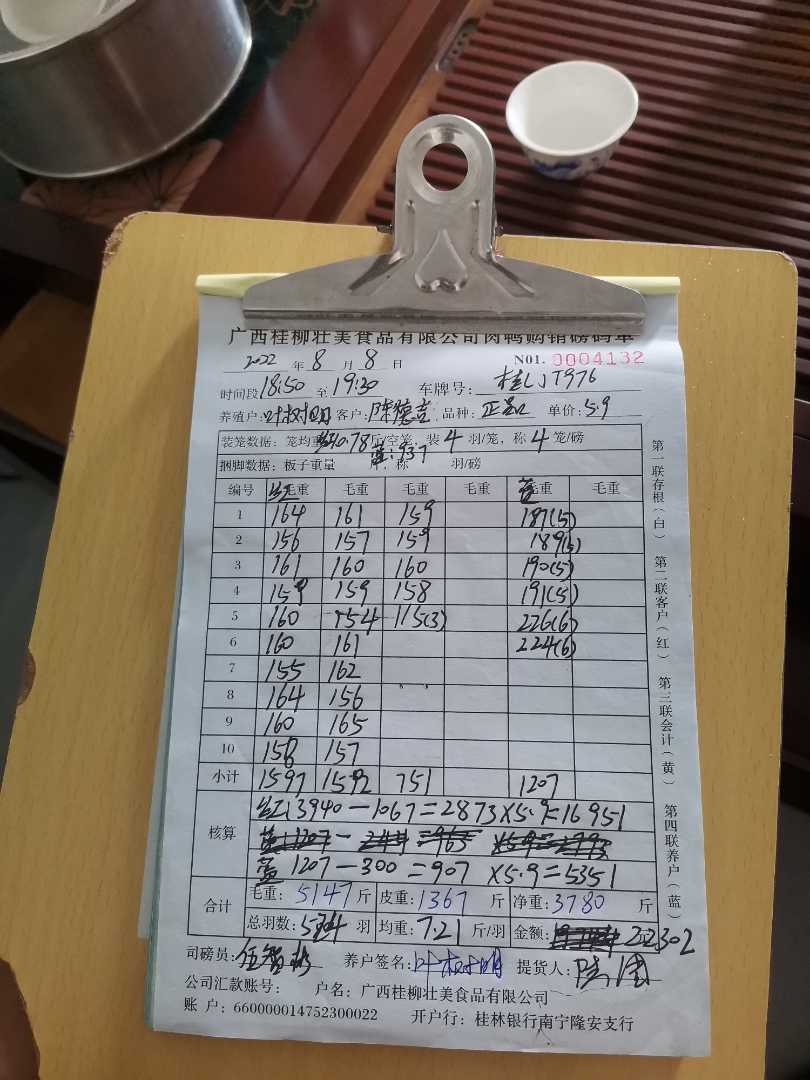 广西桂柳壮美食品有限公司肉鸭购销磅码单
2022 年 8 月 8 日 N01. 0004132
时间段 18:50 至 19:30 车牌号: 桂 JT976
养殖户: 叶树明 客户: 陈德言 品种: 正 单价: 5.9
装笼数据: 笼均重 红10.78 斤/空笼, 装 4 羽/笼, 称 4 笼/磅
捆脚数据: 板子重量 蓝: 9.37 斤, 称 羽/磅
编号 红毛重 毛重 毛重 毛重 蓝毛重 毛重
1 164 161 159 187(5)
2 156 157 159 189(5)
3 161 160 160 190(5)
4 159 159 158 191(5)
5 160 154 115(3) 226(6)
6 160 161 224(6)
7 155 162
8 164 156
9 160 165
10 158 157
小计 1597 1592 751 1207
核算 红 3940-1067=2873×5.9=16951
蓝 1207-300=907 ×5.9=5351
合计 毛重: 5147 斤 皮重: 1367 斤 净重: 3780 斤
总羽数: 524 羽 均重: 7.21 斤/羽 金额: 22302
司磅员: 养户签名: 叶树明 提货人:
公司汇款账号: 户名: 广西桂柳壮美食品有限公司
账 户: 660000014752300022 开户行: 桂林银行南宁隆安支行
第一联存根(白) 第二联客户(红) 第三联会计(黄) 第四联养户(蓝)